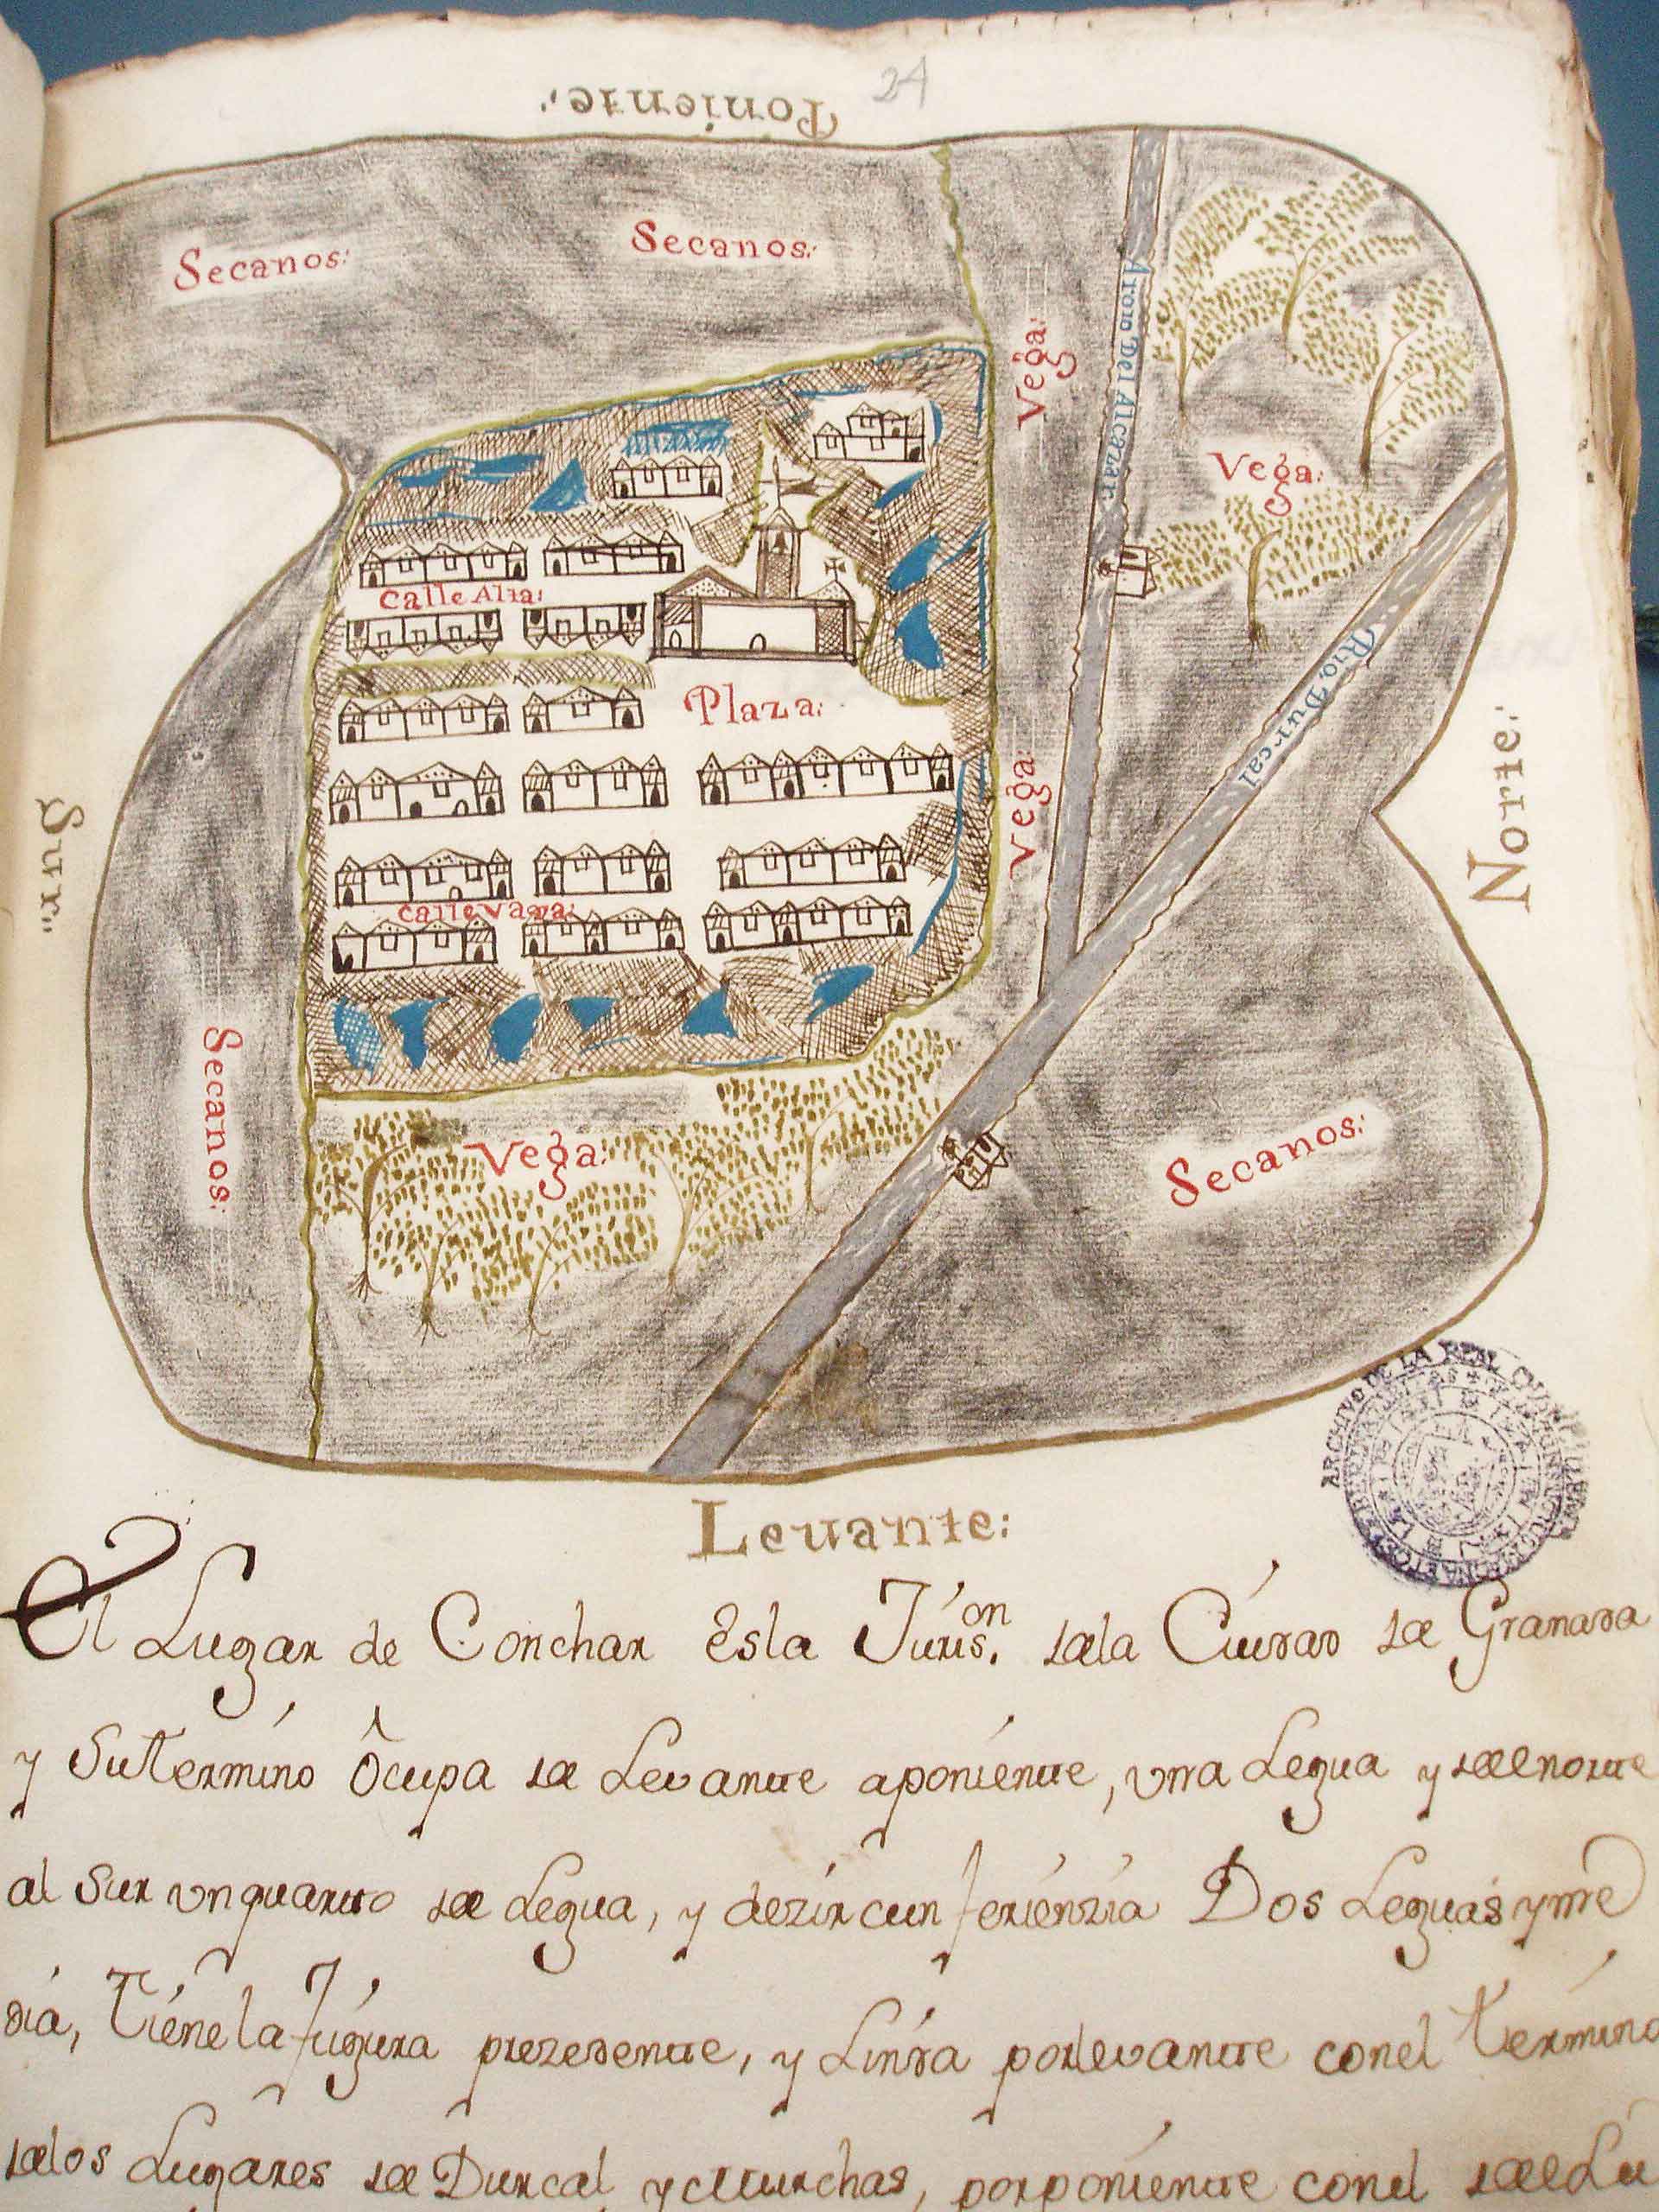 24
Poniente:
Secanos:
Secanos:
Vega:
Arroio Del Alcazar
Vega:
Calle Alta:
Plaza:
Rio, Durcal
Norte:
Sur:
Vega:
Calle Vaxa:
Secanos:
Vega:
Secanos:
Levante:
ARCHIVO DE LA REAL
El Lugar de Conchar Esla Juris.on dela Ciudad de Granada
y Su Termino Ocupa de Levante aponiente, vna Legua y del norte
al Sur vn quarto de Legua, y dezircunferienzia Dos Leguas y me
dia, Tiene la figura prezedente, y Linda por levante con el Termino
delos Lugares de Durcal y Murchas, por poniente con el del Lu